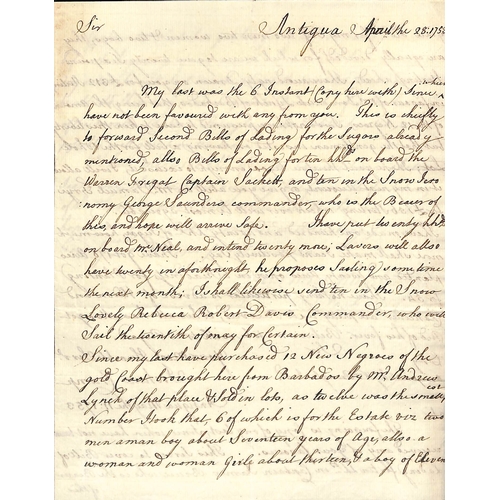 Sir Antigua April the 28: 175
My last was the 6 Instant (Copy here with) Since which
have not been favoured with any from you. This is chiefly
to forward Second Bills of Lading for the Sugars already
mentioned, allso Bills of Lading for ten hhds on board the
Warren Frigat Captain Sackett, and ten in the Snow Ioo
:nomy George Saunders commander, who is the Bearer of
this, and hope will arrive Safe. I have put twenty hhds
on board Mr. Neal, and intend twenty more; Lavers will allso
have twenty in a forthnight, he proposes Sailing some time
the next month; I shall likewise send ten in the Snow
Lovely Rebecca Robert Davis Commander, who will
Sail the twentith of may for Certain.
Since my last have purchased 12 New Negroes of the
gold Coast brought here from Barbados by Mr. Andrew
Lynch of that place & Sold in lots, as twelve was the smallest
Number I took that, 6 of which is for the Estate viz two
men a man boy about Seventeen years of Age, allso a
woman and woman Girle about thirteen, & a boy of Eleven